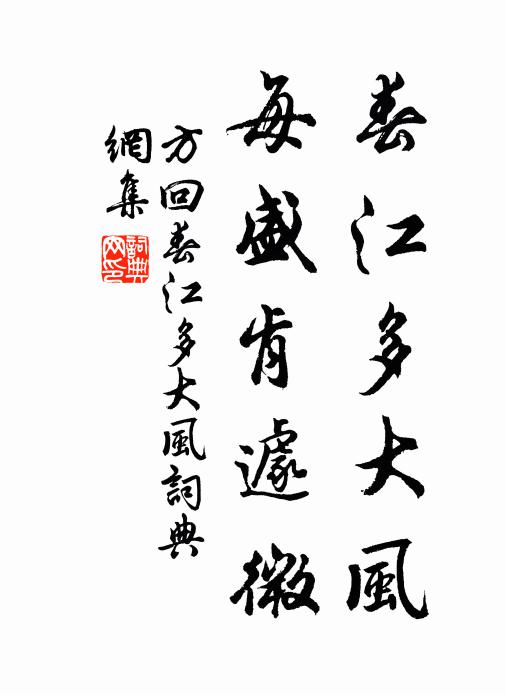 春江多大風
每盛肯遽微
方回春江多大風詞典
網集
詞典網印